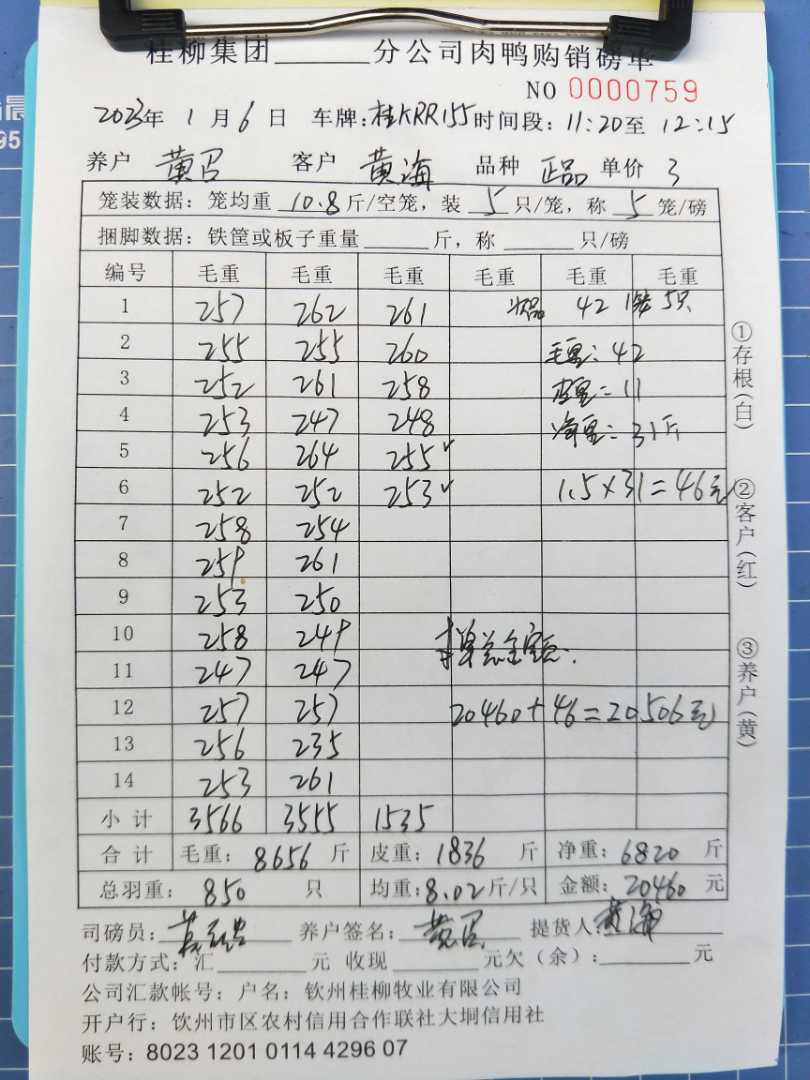 桂柳集团______分公司肉鸭购销磅单
NO 0000759
2023年 1 月 6 日 车牌:桂KRR155 时间段:11:20至 12:15
养户 黄召 客户 黄海 品种 正品 单价 3
笼装数据：笼均重 10.8 斤/空笼，装 5 只/笼，称 5 笼/磅
捆脚数据：铁筐或板子重量______斤，称______只/磅
编号 毛重 毛重 毛重 毛重 毛重 毛重
1 257 262 261 次品 42 1笼 5只
2 255 255 260 毛重：42
3 252 261 258 皮重=11
4 253 247 248 净重：31斤
5 256 264 255
6 252 252 253 1.5×31=46元
7 258 254
8 259 261
9 253 250
10 258 249 单总金额.
11 247 247
12 257 257 20460+46=20506元
13 256 235
14 253 261
小计 3566 3555 1535
合计 毛重：8656 斤 皮重：1836 斤 净重：6820 斤
总羽重：850 只 均重：8.02斤/只 金额：20460 元
司磅员: 养户签名：黄召 提货人 黄海
付款方式：汇______元 收现______元欠（余）：______元
公司汇款帐号：户名：钦州桂柳牧业有限公司
开户行：钦州市区农村信用合作联社大垌信用社
账号：8023 1201 0114 4296 07
①存根(白)
②客户(红)
③养户(黄)
晨
95